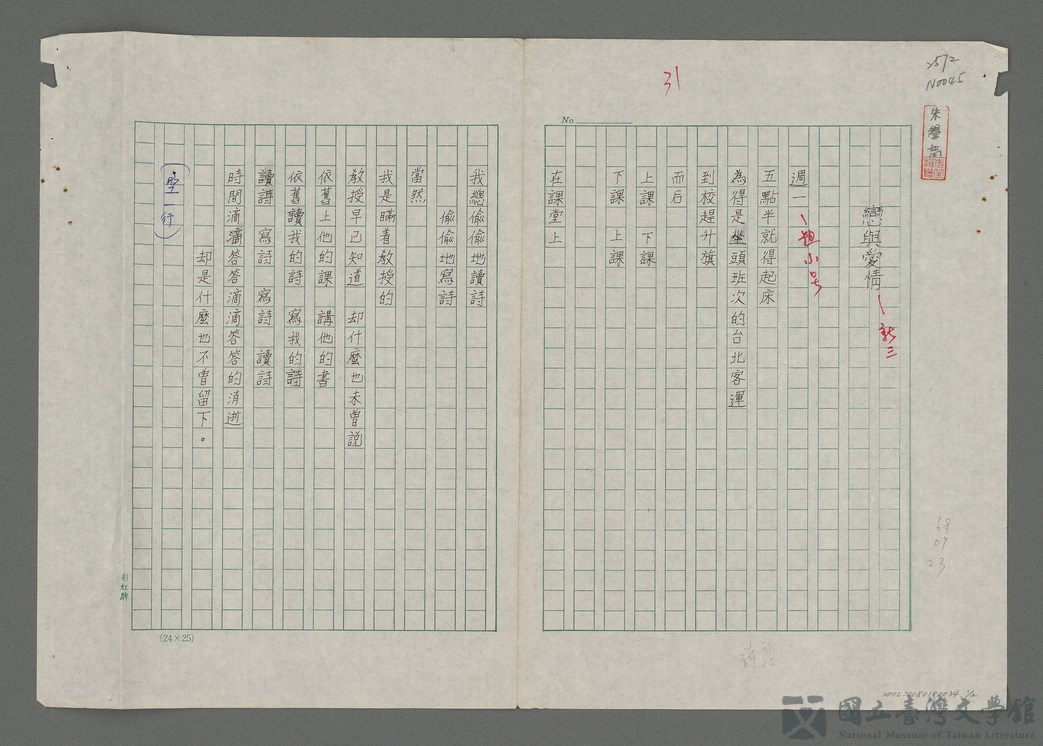 31
N0045
朱學恕
No.
戀與愛情
新三
週一
短小号
五點半就得起床
為得是坐頭班次的台北客運
到校趕升旗
而后
上課　下課
下課　上課
在課堂上
我總偷偷地讀詩
偷偷地寫詩
當然
我是瞞着教授的
教授早已知道　却什麼也未曾說
依舊上他的課　講他的書
依舊讀我的詩　寫我的詩
讀詩　寫詩　寫詩　讀詩
時間滴滴答答滴滴答答的消逝
却是什麼也不曾留下。
(空一行)
彩虹牌
(24×25)
69
07
23
國立臺灣文學館
National Museum of Taiwan Literature